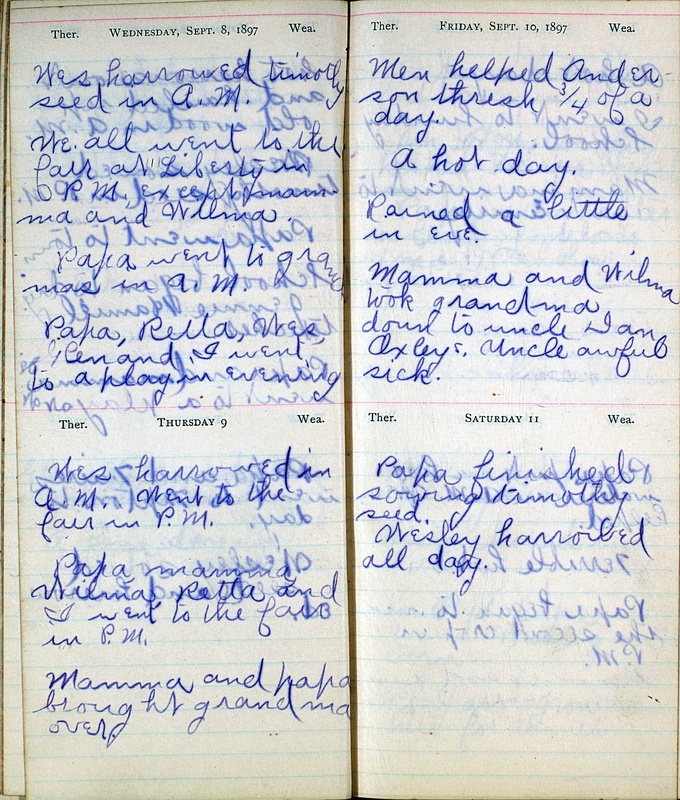 Ther. WEDNESDAY, SEPT. 8, 1897 Wea.
Wes harrowed timothy
seed in A.M.
We all went to the
fair at Liberty in
P.M. except mam-
ma and Wilma.
Papa went to grand
mas in A.M.
Papa, Retta, Wes,
Glen and I went
to a play in evening
Ther. THURSDAY 9 Wea.
Wes harrowed in
A.M. Went to the
fair in P.M.
Papa mamma
Wilma Retta and
I went to the fair
in P.M.
Mamma and papa
brought grandma
over
Ther. FRIDAY, SEPT. 10, 1897 Wea.
Men helped Ander-
son thresh 3/4 of a
day.
A hot day.
Rained a little
in eve.
Mamma and Wilma
took grandma
down to uncle Dan
Oxleys. Uncle awful
sick.
Ther. SATURDAY 11 Wea.
Papa finished
sowing timothy
seed.
Wesley harrowed
all day.